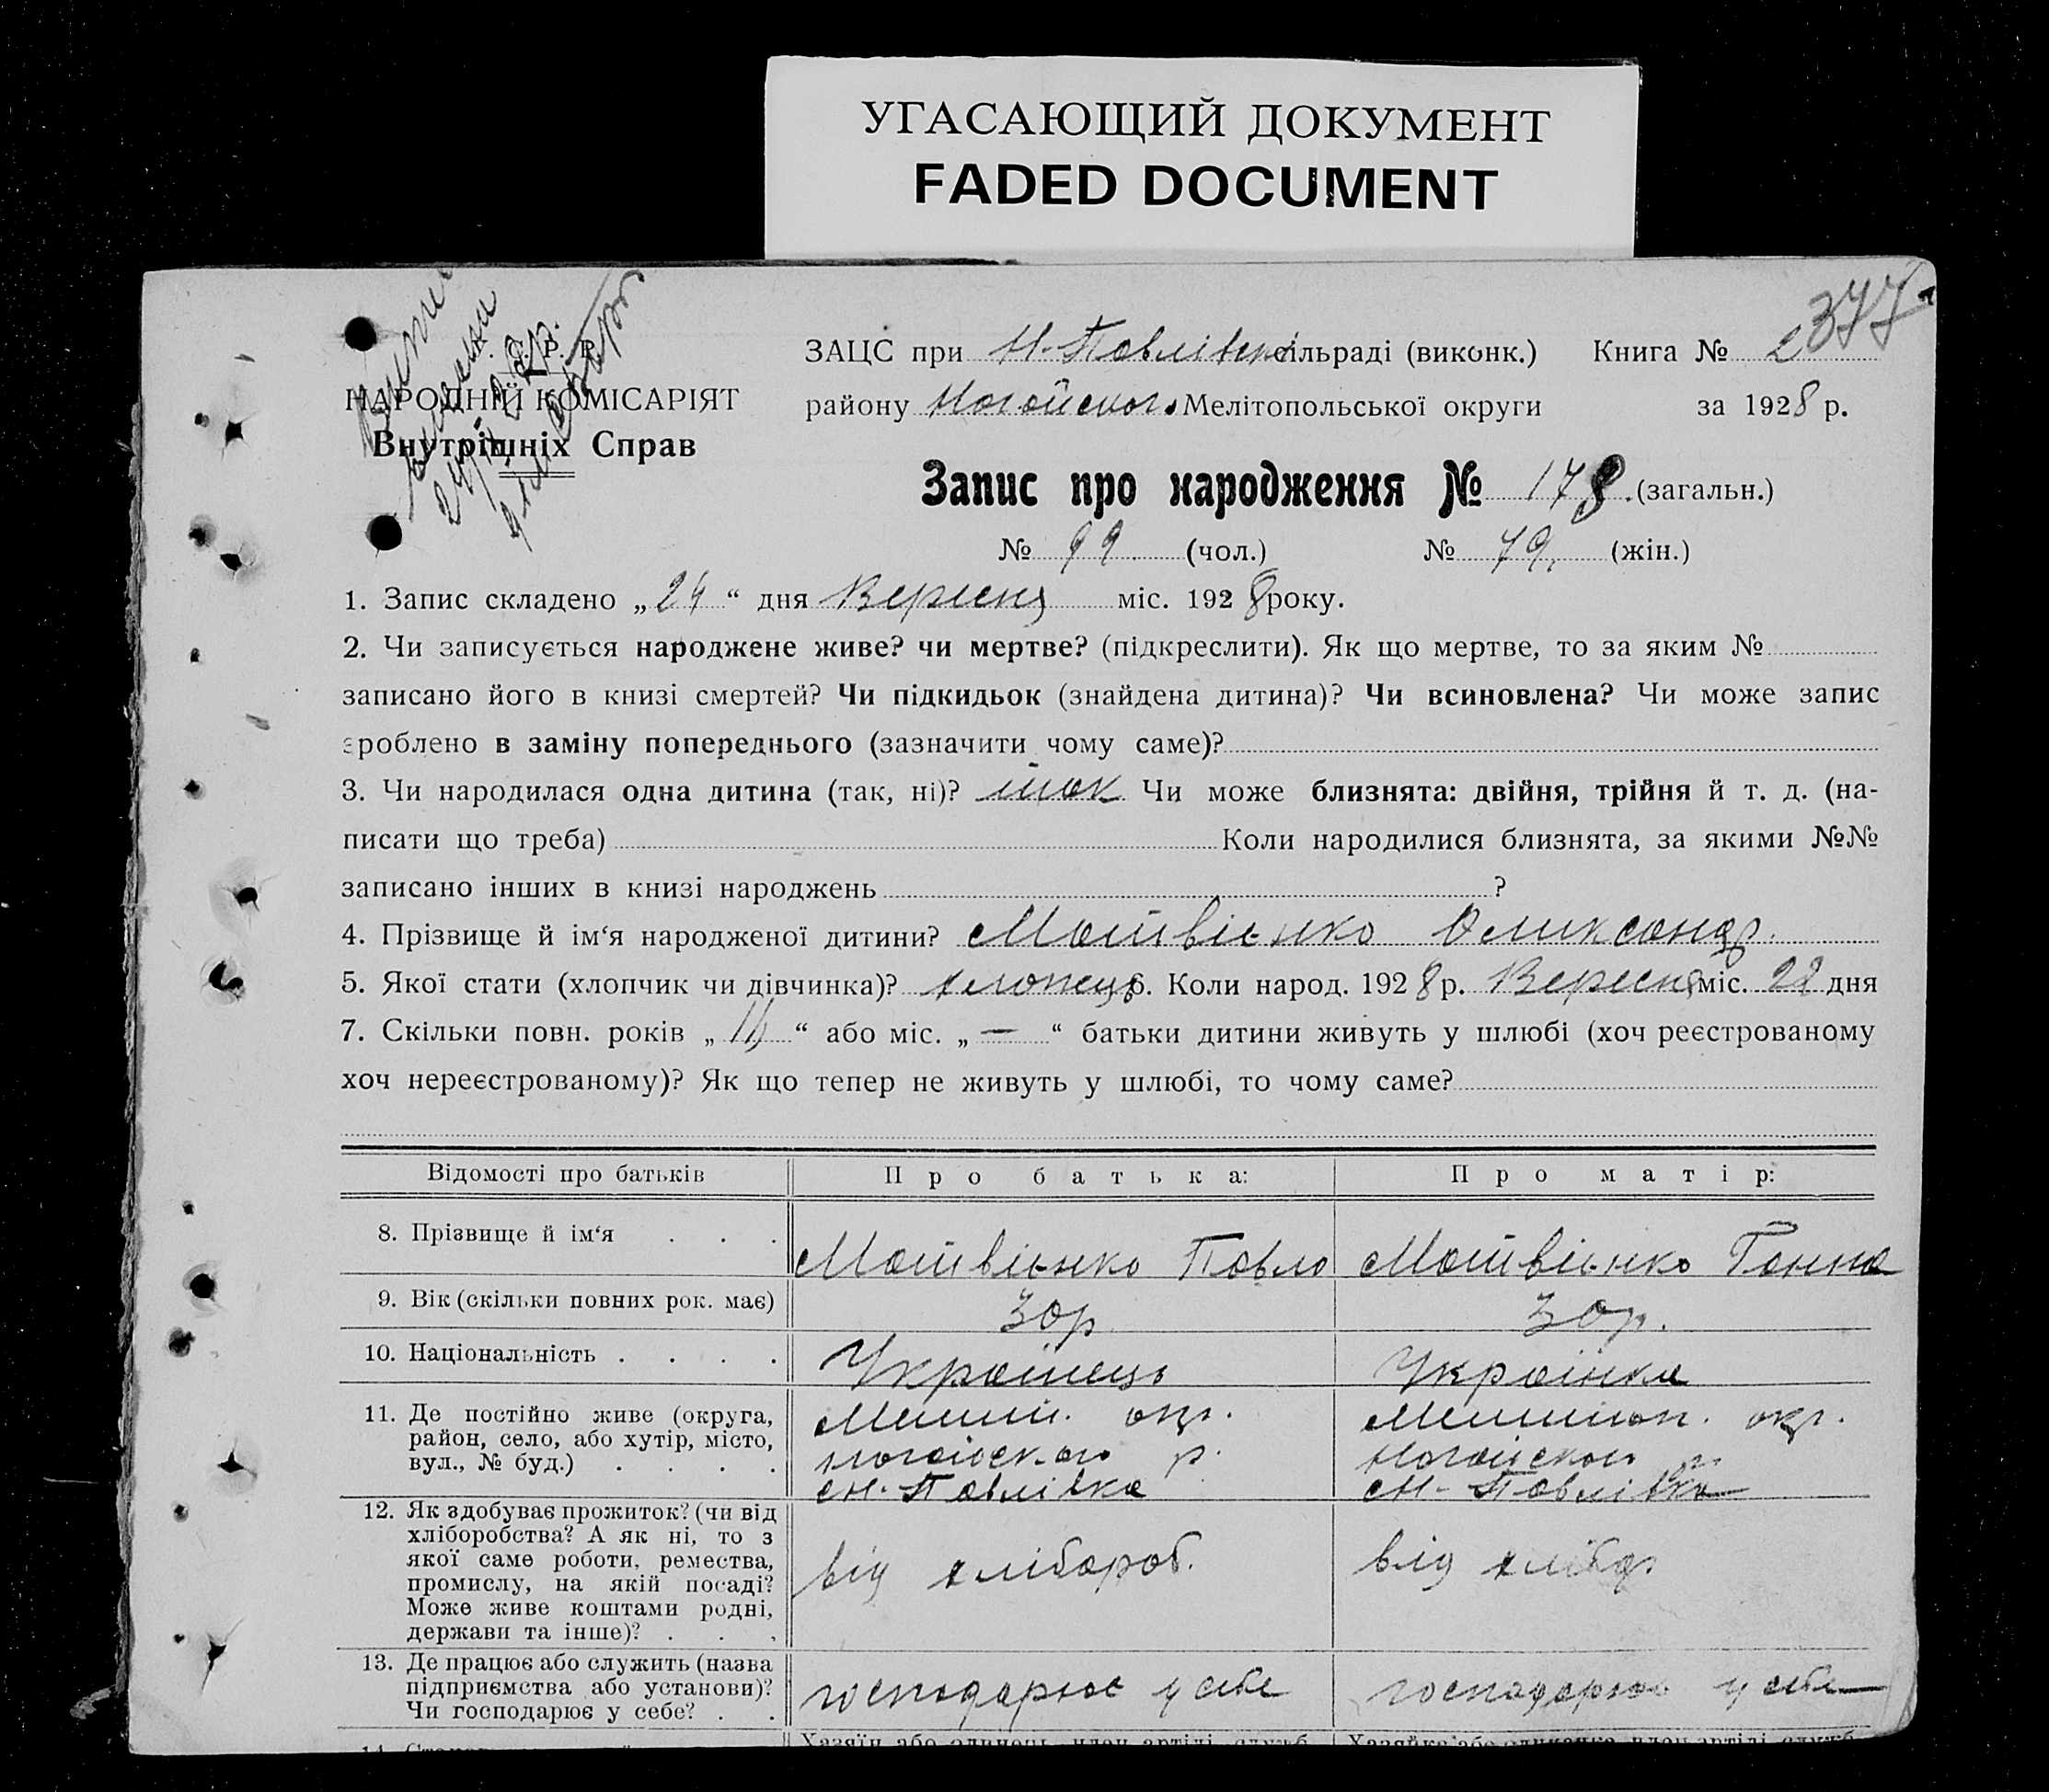 УГАСАЮЩИЙ ДОКУМЕНТ
FADED DOCUMENT
377
Р. Р.
НАРОДНІЙ КОМІСАРІЯТ
Внутрішніх Справ
ЗАЦС при Н-Павлівск. сільраді (виконк.) Книга № 2
району Ногайского Мелітопольської округи за 1928 р.
Запис про народження № 178 (загальн.)
№ 99 (чол.) № 79 (жін.)
1. Запис складено „24“ дня Вересня міс. 1928 року.
2. Чи записується народжене живе? чи мертве? (підкреслити). Як що мертве, то за яким №
записано його в книзі смертей? Чи підкидьок (знайдена дитина)? Чи всиновлена? Чи може запис
зроблено в заміну попереднього (зазначити чому саме)?
3. Чи народилася одна дитина (так, ні)? так Чи може близнята: двійня, трійня й т. д. (на-
писати що треба) Коли народилися близнята, за якими №№
записано інших в книзі народжень ?
4. Прізвище й ім‘я народженої дитини? Матвієнко Оликсандр.
5. Якої стати (хлопчик чи дівчинка)? хлопець 6. Коли народ. 1928 р. Вересня міс. 22 дня
7. Скільки повн. років „11“ або міс. „—“ батьки дитини живуть у шлюбі (хоч реєстрованому
хоч нереєстрованому)? Як що тепер не живуть у шлюбі, то чому саме?
Відомості про батьків Про батька: Про матір:
8. Прізвище й ім‘я . . . Матвієнко Павло Матвієнко Ганна
9. Вік (скільки повних рок. має) 30 р. 30 р.
10. Національність . . . . Українець Українка
11. Де постійно живе (округа, Мелит. окр. Мелитоп. окр.
район, село, або хутір, місто, Ногайского р. Ногайского р.
вул., № буд.) . . . . с Н-Павлівка с Н-Павлівка
12. Як здобуває прожиток? (чи від
хліборобства? А як ні, то з
якої саме роботи, ремества, від хлібороб. від хлібор
промислу, на якій посаді?
Може живе коштами родні,
держави та інше)? . . .
13. Де працює або служить (назва
підприємства або установи)? господарює у себе господарює у себе
Чи господарює у себе? . .
Хазяїн або одинець, член артілі, служб. Хазяйка або одиначка, член артілі, служб.